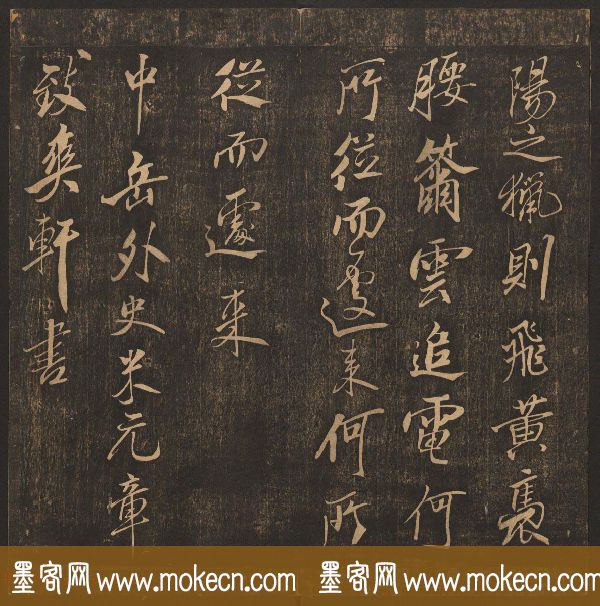 陽之獵則飛黃褭
腰籋雲追電何
所從而遽来何所
從而遽来
中岳外史米元章
致爽軒書
墨客网 www.mokecn.com 墨客网 www.mokecn.com